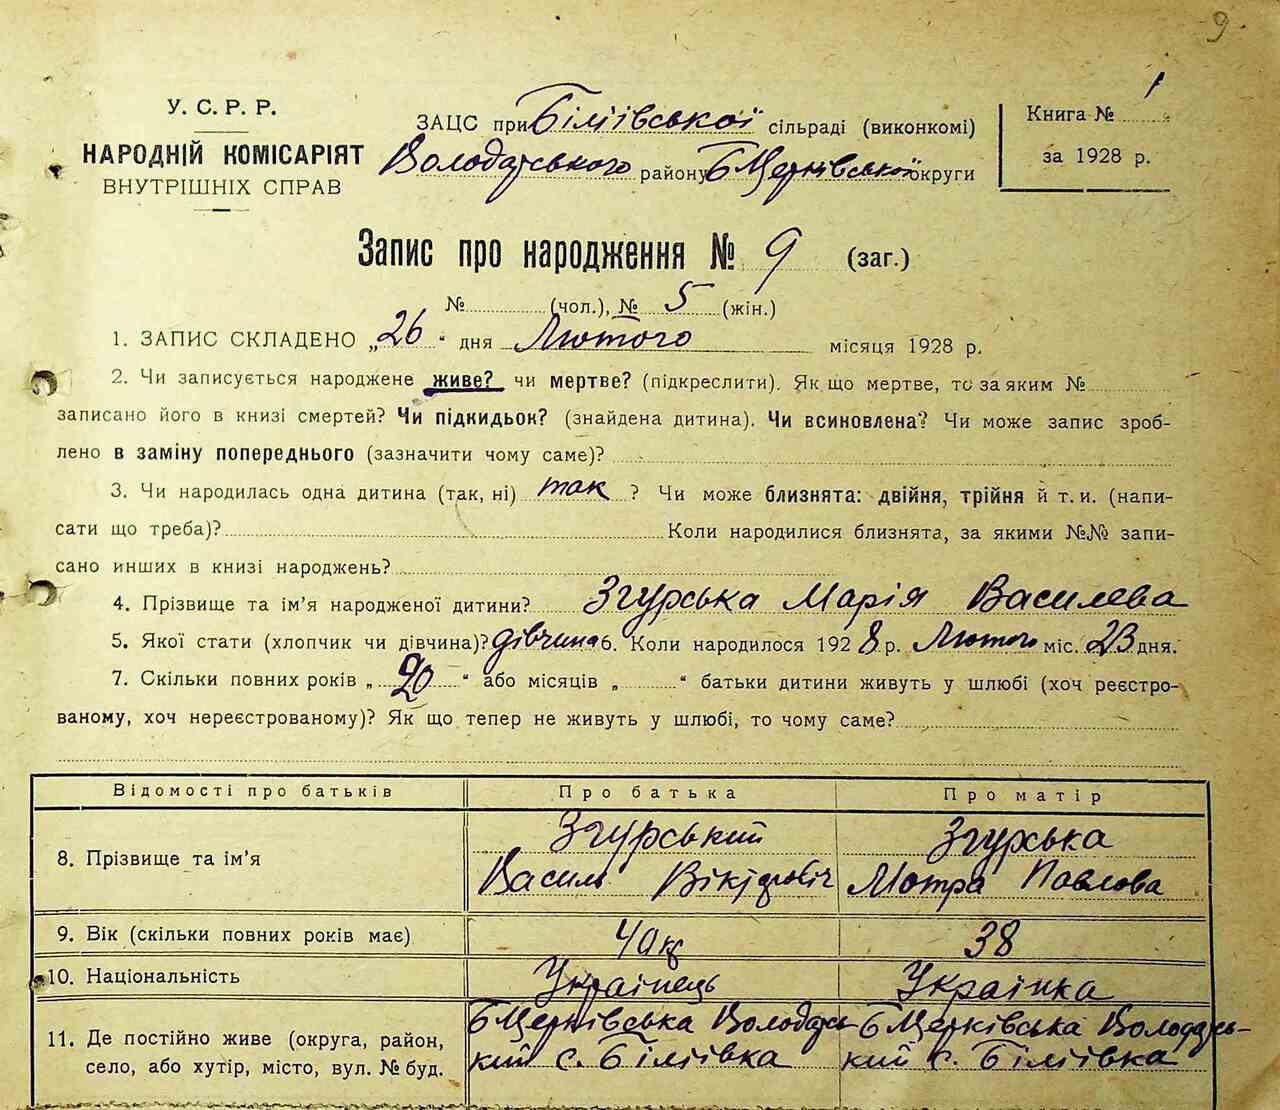 9
У. С. Р. Р.
НАРОДНІЙ КОМІСАРІЯТ
ВНУТРІШНІХ СПРАВ
ЗАЦС при Біліївської сільраді (виконкомі)
Володарського району БЦерківської округи
Книга № 1
за 1928 р.
Запис про народження № 9 (заг.)
№ (чол.), № 5 (жін.)
1. ЗАПИС СКЛАДЕНО „26" дня Лютого місяця 1928 р.
2. Чи записується народжене живе? чи мертве? (підкреслити). Як що мертве, то за яким №
записано його в книзі смертей? Чи підкидьок? (знайдена дитина). Чи всиновлена? Чи може запис зроб-
лено в заміну попереднього (зазначити чому саме)?
3. Чи народилась одна дитина (так, ні) так ? Чи може близнята: двійня, трійня й т. и. (напи-
сати що треба)? Коли народилися близнята, за якими №№ запи-
сано инших в книзі народжень?
4. Прізвище та ім'я народженої дитини? Згурська Марія Василева
5. Якої стати (хлопчик чи дівчина)? дівчина 6. Коли народилося 1928 р. Лютого міс. 23 дня.
7. Скільки повних років „20" або місяців „ " батьки дитини живуть у шлюбі (хоч реєстро-
ваному, хоч нереєстрованому)? Як що тепер не живуть у шлюбі, то чому саме?
Відомості про батьків Про батька Про матір
8. Прізвище та ім'я
Згурський Згурська
Василь Мотра Павлова
9. Вік (скільки повних років має) 38
10. Національність Українець Українка
11. Де постійно живе (округа, район,
село, або хутір, місто, вул. № буд.
БЦерківська Володарсь- БЦерківська Володарсь-
кий с. Біліївка кий с. Біліївка